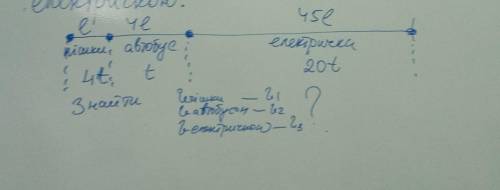 електрйскою.
l 4l 45l
пішки автобус електричка
4t t 20t
Знайти
υпішки — υ1
υавтобусом — υ2 ?
υелектричкой — υ3